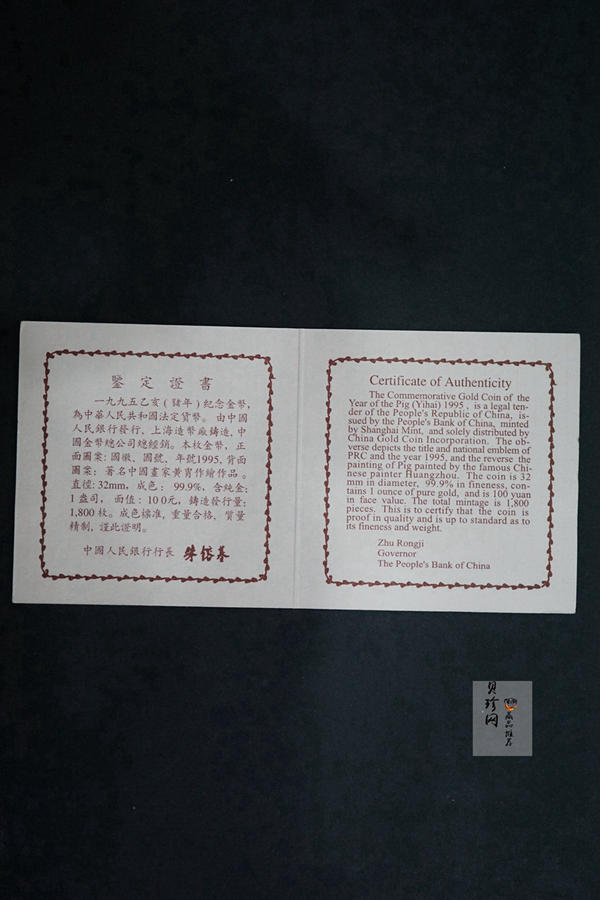 鑒定證書
一九九五乙亥（豬年）紀念金幣，
為中華人民共和國法定貨幣。由中國
人民銀行發行，上海造幣廠鑄造，中
國金幣總公司總經銷。本枚金幣，正
面圖案：國徽、國號、年號1995，背面
圖案：著名中國畫家黃胄作繪作品。
直徑：32mm，成色：99.9%，含純金：
1盎司，面值：100元，鑄造發行量：
1,800枚。成色標准，重量合格，質量
精制，謹此證明。
中國人民銀行行長 朱鎔基
Certificate of Authenticity
The Commemorative Gold Coin of the
Year of the Pig (Yihai) 1995 , is a legal ten-
der of the People's Republic of China, is-
sued by the People's Bank of China, minted
by Shanghai Mint, and solely distributed by
China Gold Coin Incorporation. The ob-
verse depicts the title and national emblem of
PRC and the year 1995, and the reverse the
painting of Pig painted by the famous Chi-
nese painter Huangzhou. The coin is 32
mm in diameter, 99.9% in fineness, con-
tains 1 ounce of pure gold, and is 100 yuan
in face value. The total mintage is 1,800
pieces. This is to certify that the coin is
proof in quality and is up to standard as to
its fineness and weight.
Zhu Rongji
Governor
The People's Bank of China
贝珍网
商品推荐